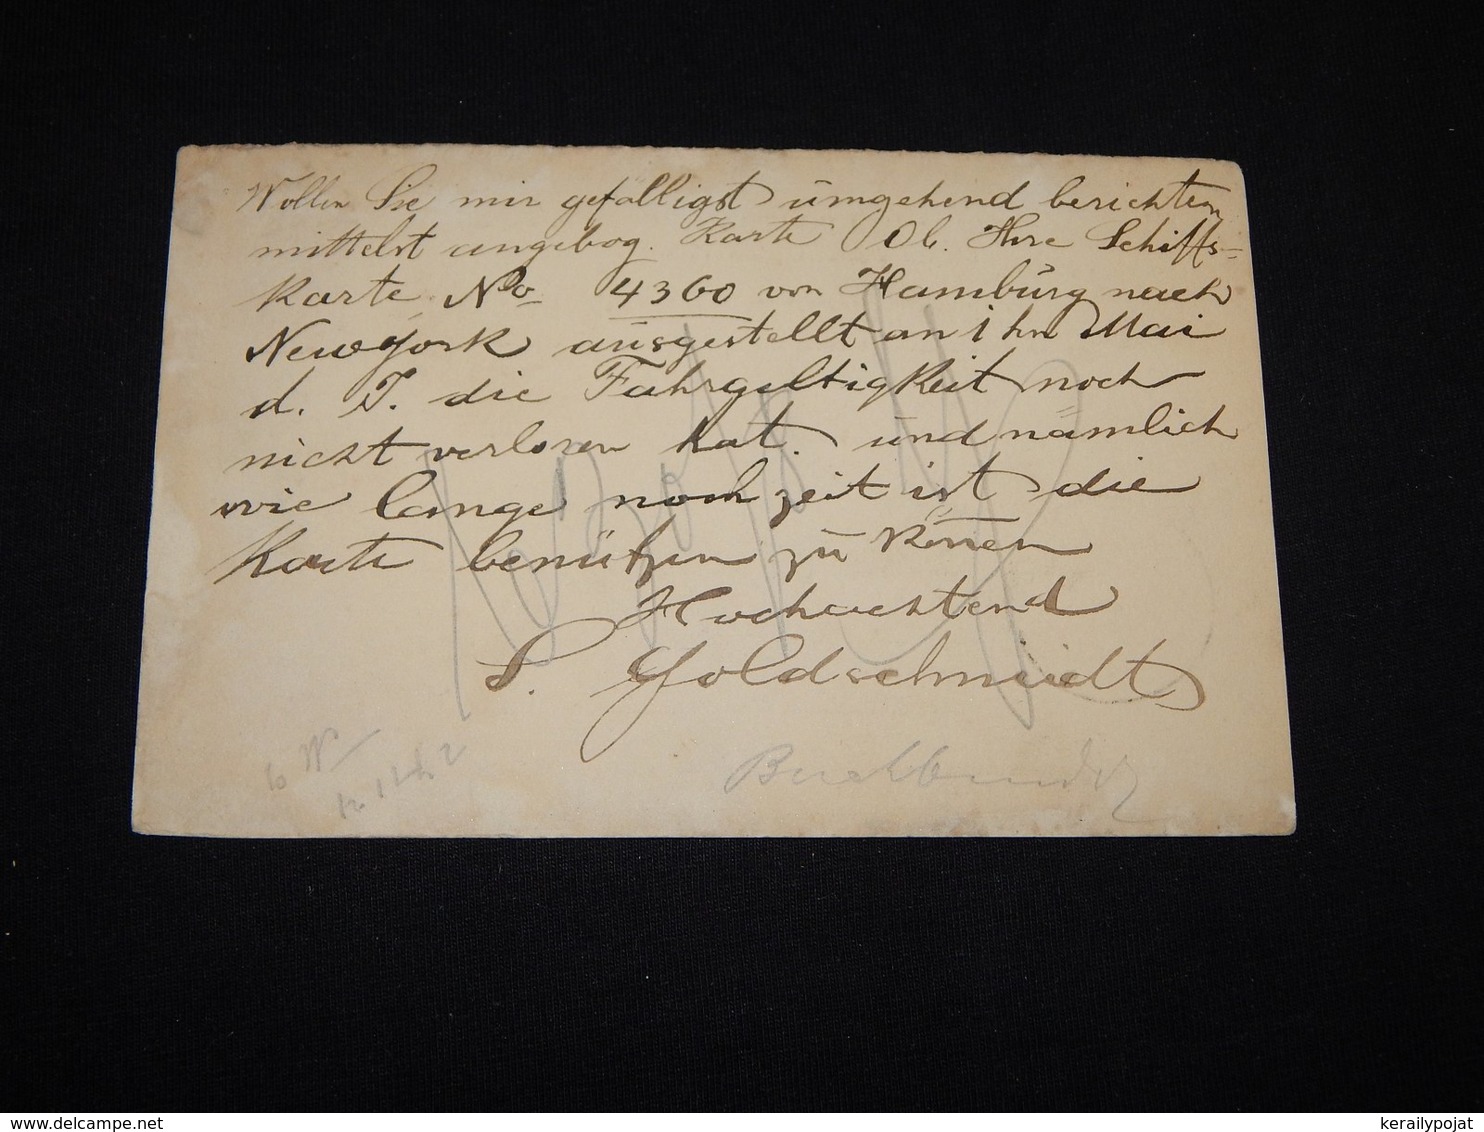 Wollen Sie mir gefälligst umgehend berichten
mittelst angebog. Karte Ob. Ihre Schiffs-
karte No 4360 von Hamburg nach
Newyork ausgestellt an 1 ten Mai
d. J. die Fahrgeltigkeit noch
nicht verloren hat. und nämlich
wie lange noch zeit ist die
Karte benützen zu könen
Hochachtend
S. Goldschmidt
kerailypojat